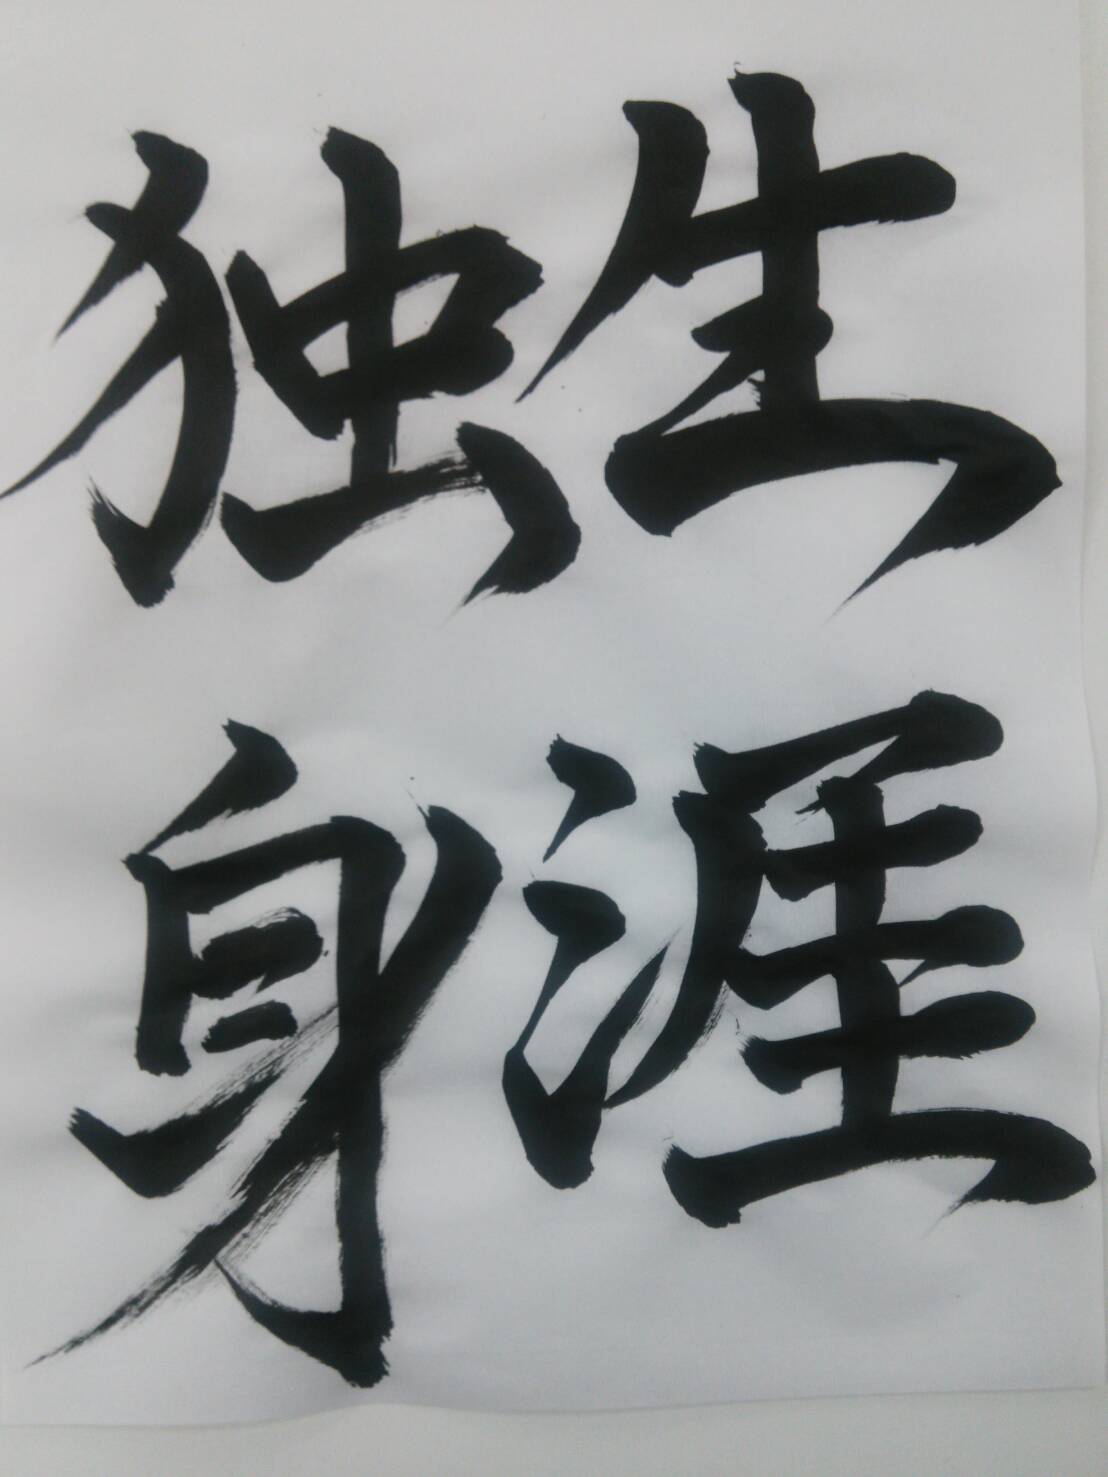 生涯
独身